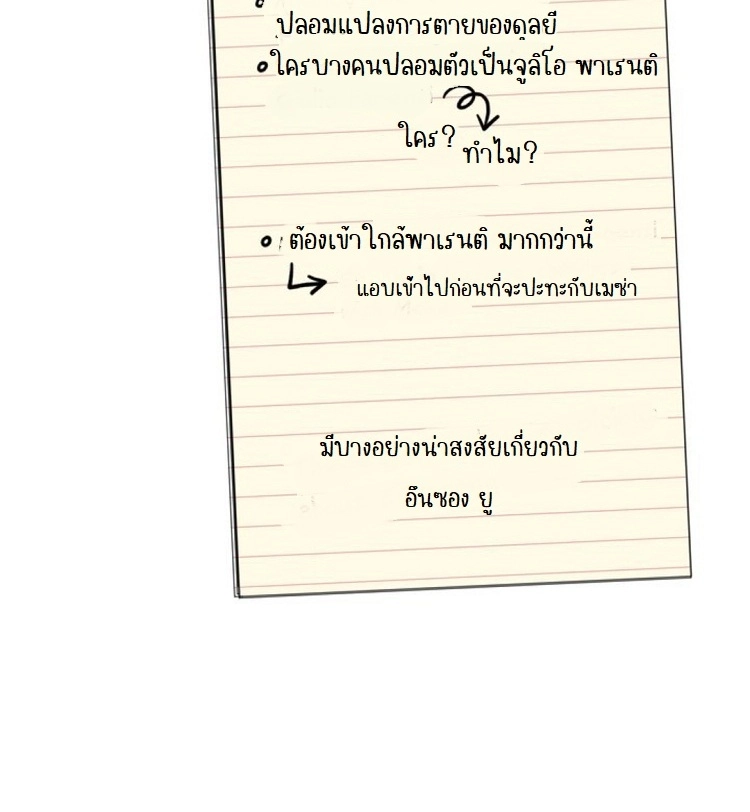 ปลอมแปลงการตายของดุลยี
ใครบางคนปลอมตัวเป็นจูลิโอ พาเรนติ
ใคร? ทำไม?
ต้องเข้าใกล้พาเรนติ มากกว่านี้
แอบเข้าไปก่อนที่จะปะทะกับเมซ่า
มีบางอย่างน่าสงสัยเกี่ยวกับ
อึนซอง ยู